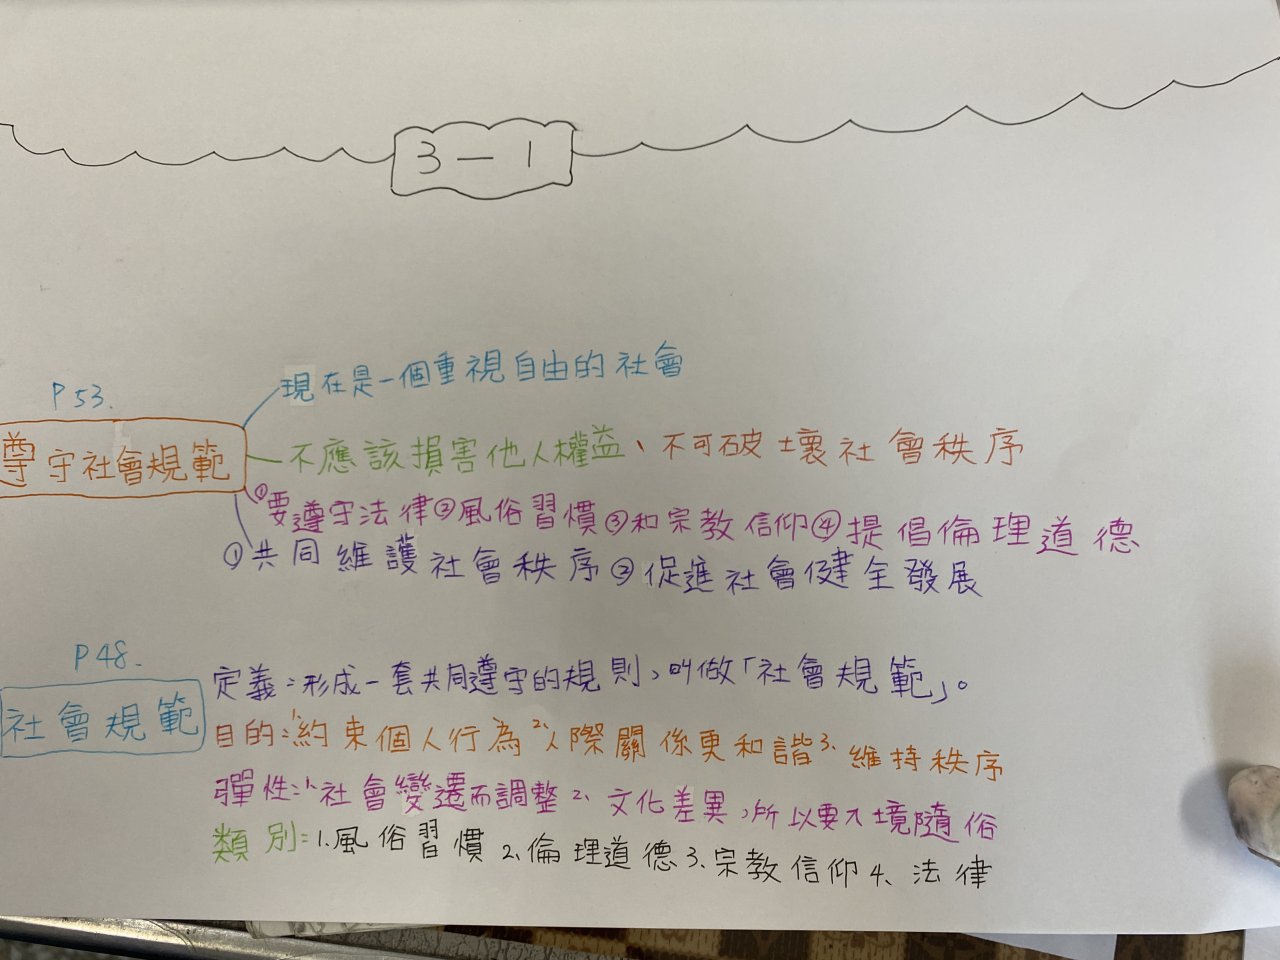 3－1
P53.
遵守社會規範
現在是一個重視自由的社會
不應該損害他人權益、不可破壞社會秩序
①要遵守法律②風俗習慣③和宗教信仰④提倡倫理道德
①共同維護社會秩序②促進社會健全發展
P48.
社會規範
定義：形成一套共同遵守的規則，叫做「社會規範」。
目的：1.約束個人行為2.人際關係更和諧3.維持秩序
彈性：1.社會變遷而調整2.文化差異，所以要入境隨俗
類別：1.風俗習慣2.倫理道德3.宗教信仰4.法律